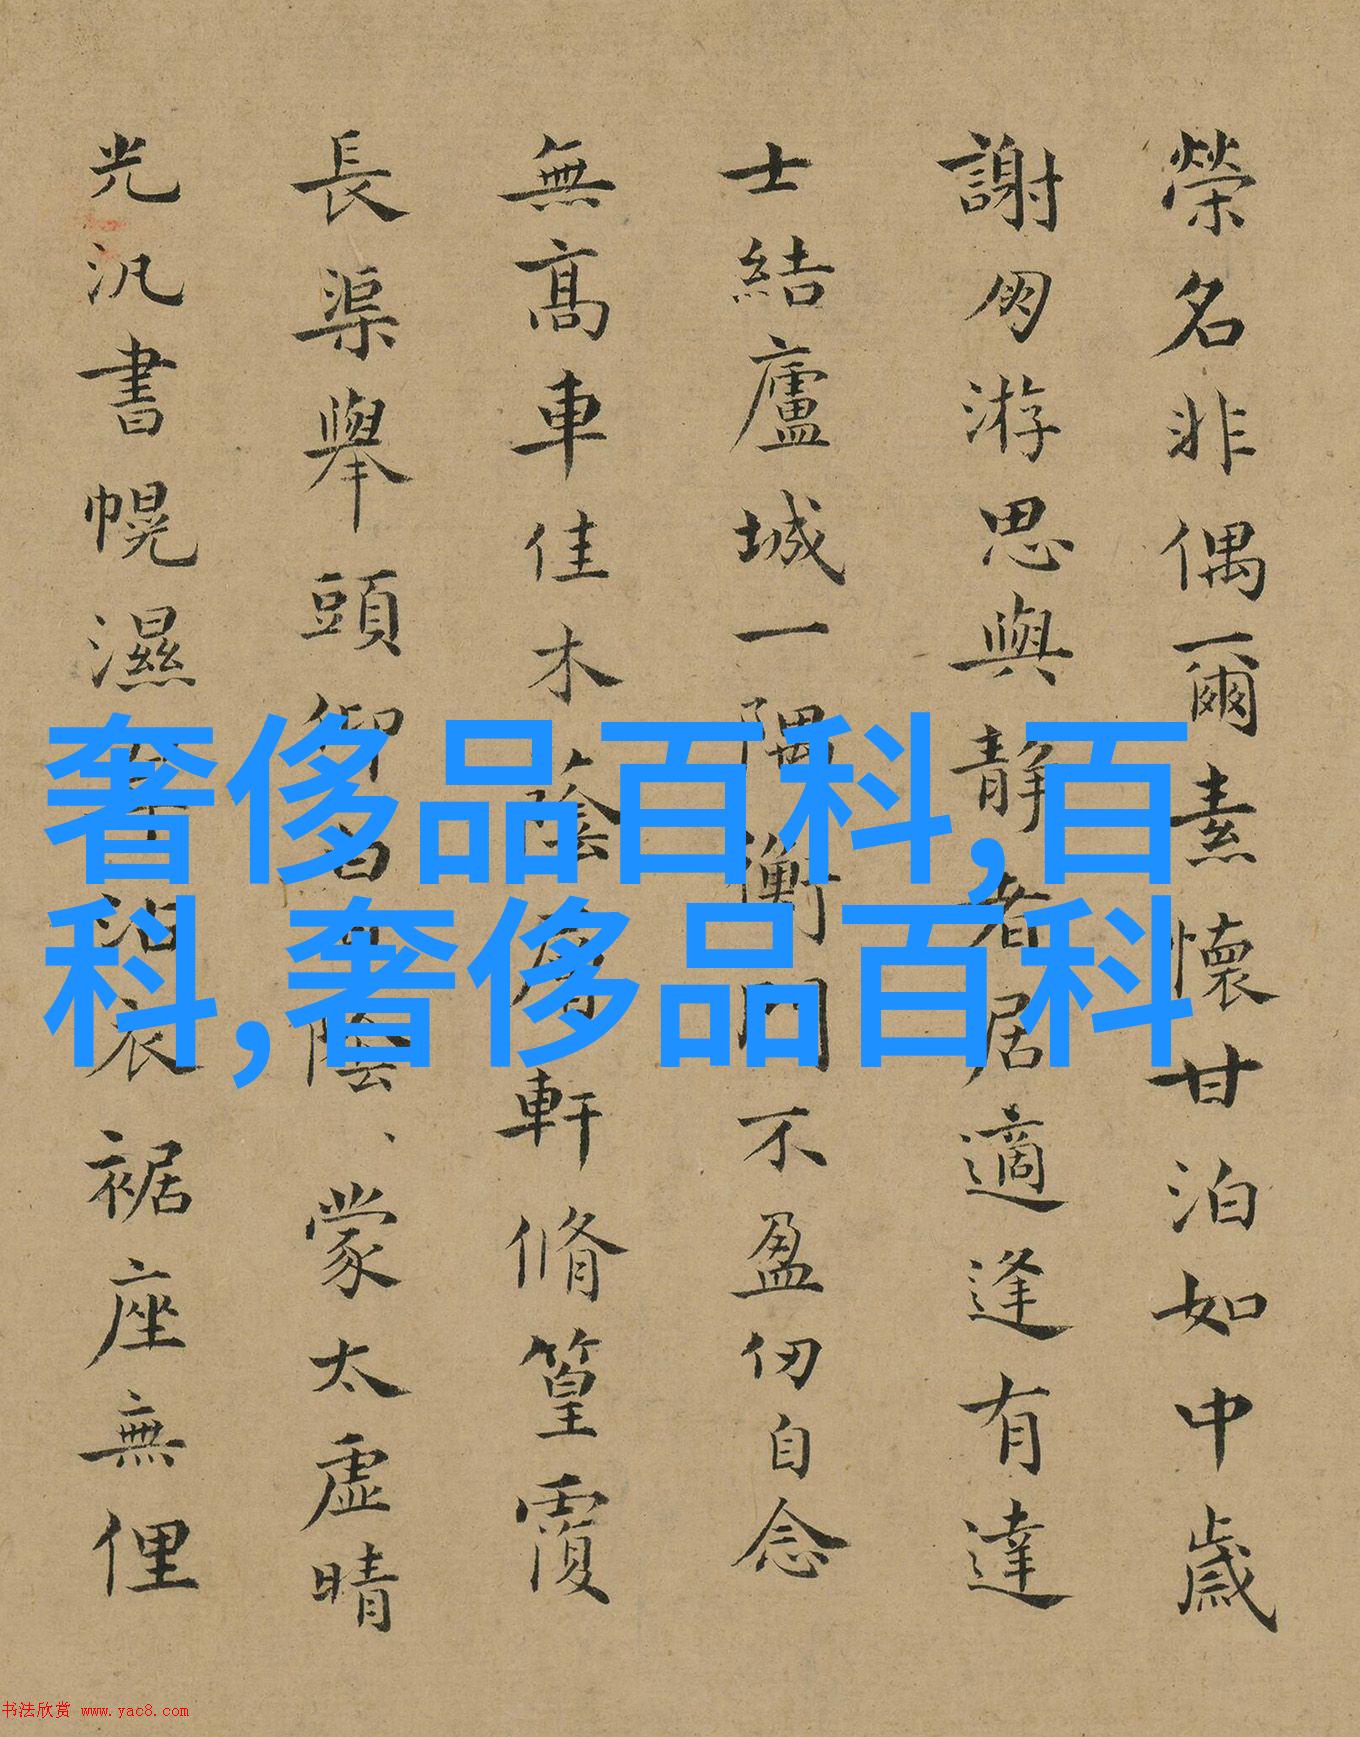 榮名非偶爾素懷甘泊如中歲
謝朋游思與靜者居適逢有達
士結廬城一隅衡門不盈仞自念
無髙車佳木蔭層軒脩篁覆
長渠舉頭仰白陰、蒙太虛晴
光汎書幌濕翠沾衣裾座無俚
奢侈品百科,百
科,奢侈品百科
书法欣赏 www.yac8.com